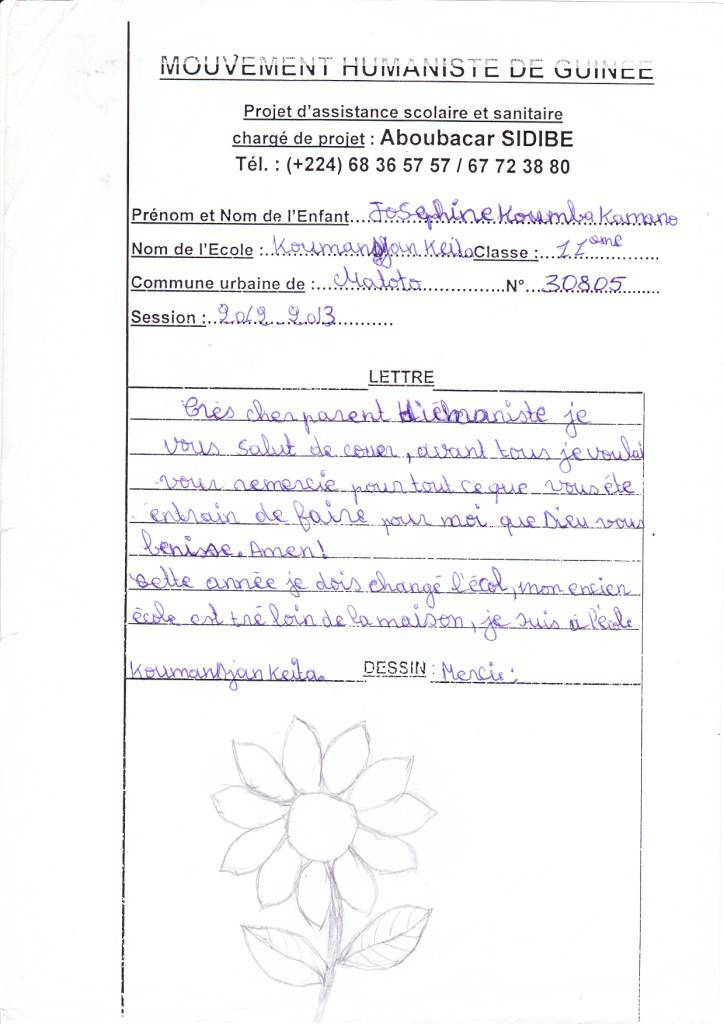 MOUVEMENT HUMANISTE DE GUINEE
Projet d'assistance scolaire et sanitaire
chargé de projet : Aboubacar SIDIBE
Tél. : (+224) 68 36 57 57 / 67 72 38 80
Prénom et Nom de l'Enfant...Joséphine Koumba Kamano
Nom de l'Ecole :..KoumanDjan Keita Classe :...11ème
Commune urbaine de :...Matoto...N°...30805
Session :..2012_2013
LETTRE
Très cher parent Humaniste je
vous salut de couer, avant tous je voulai
vous remercie pour tout ce que vous éte
entrain de faire pour moi que Dieu vous
benisse. Amen!
Cette année je dois changé l'écol, mon encien
école est tré loin de la maison, je suis à l'école
KoumanDjan Keita. DESSIN : Mercie :